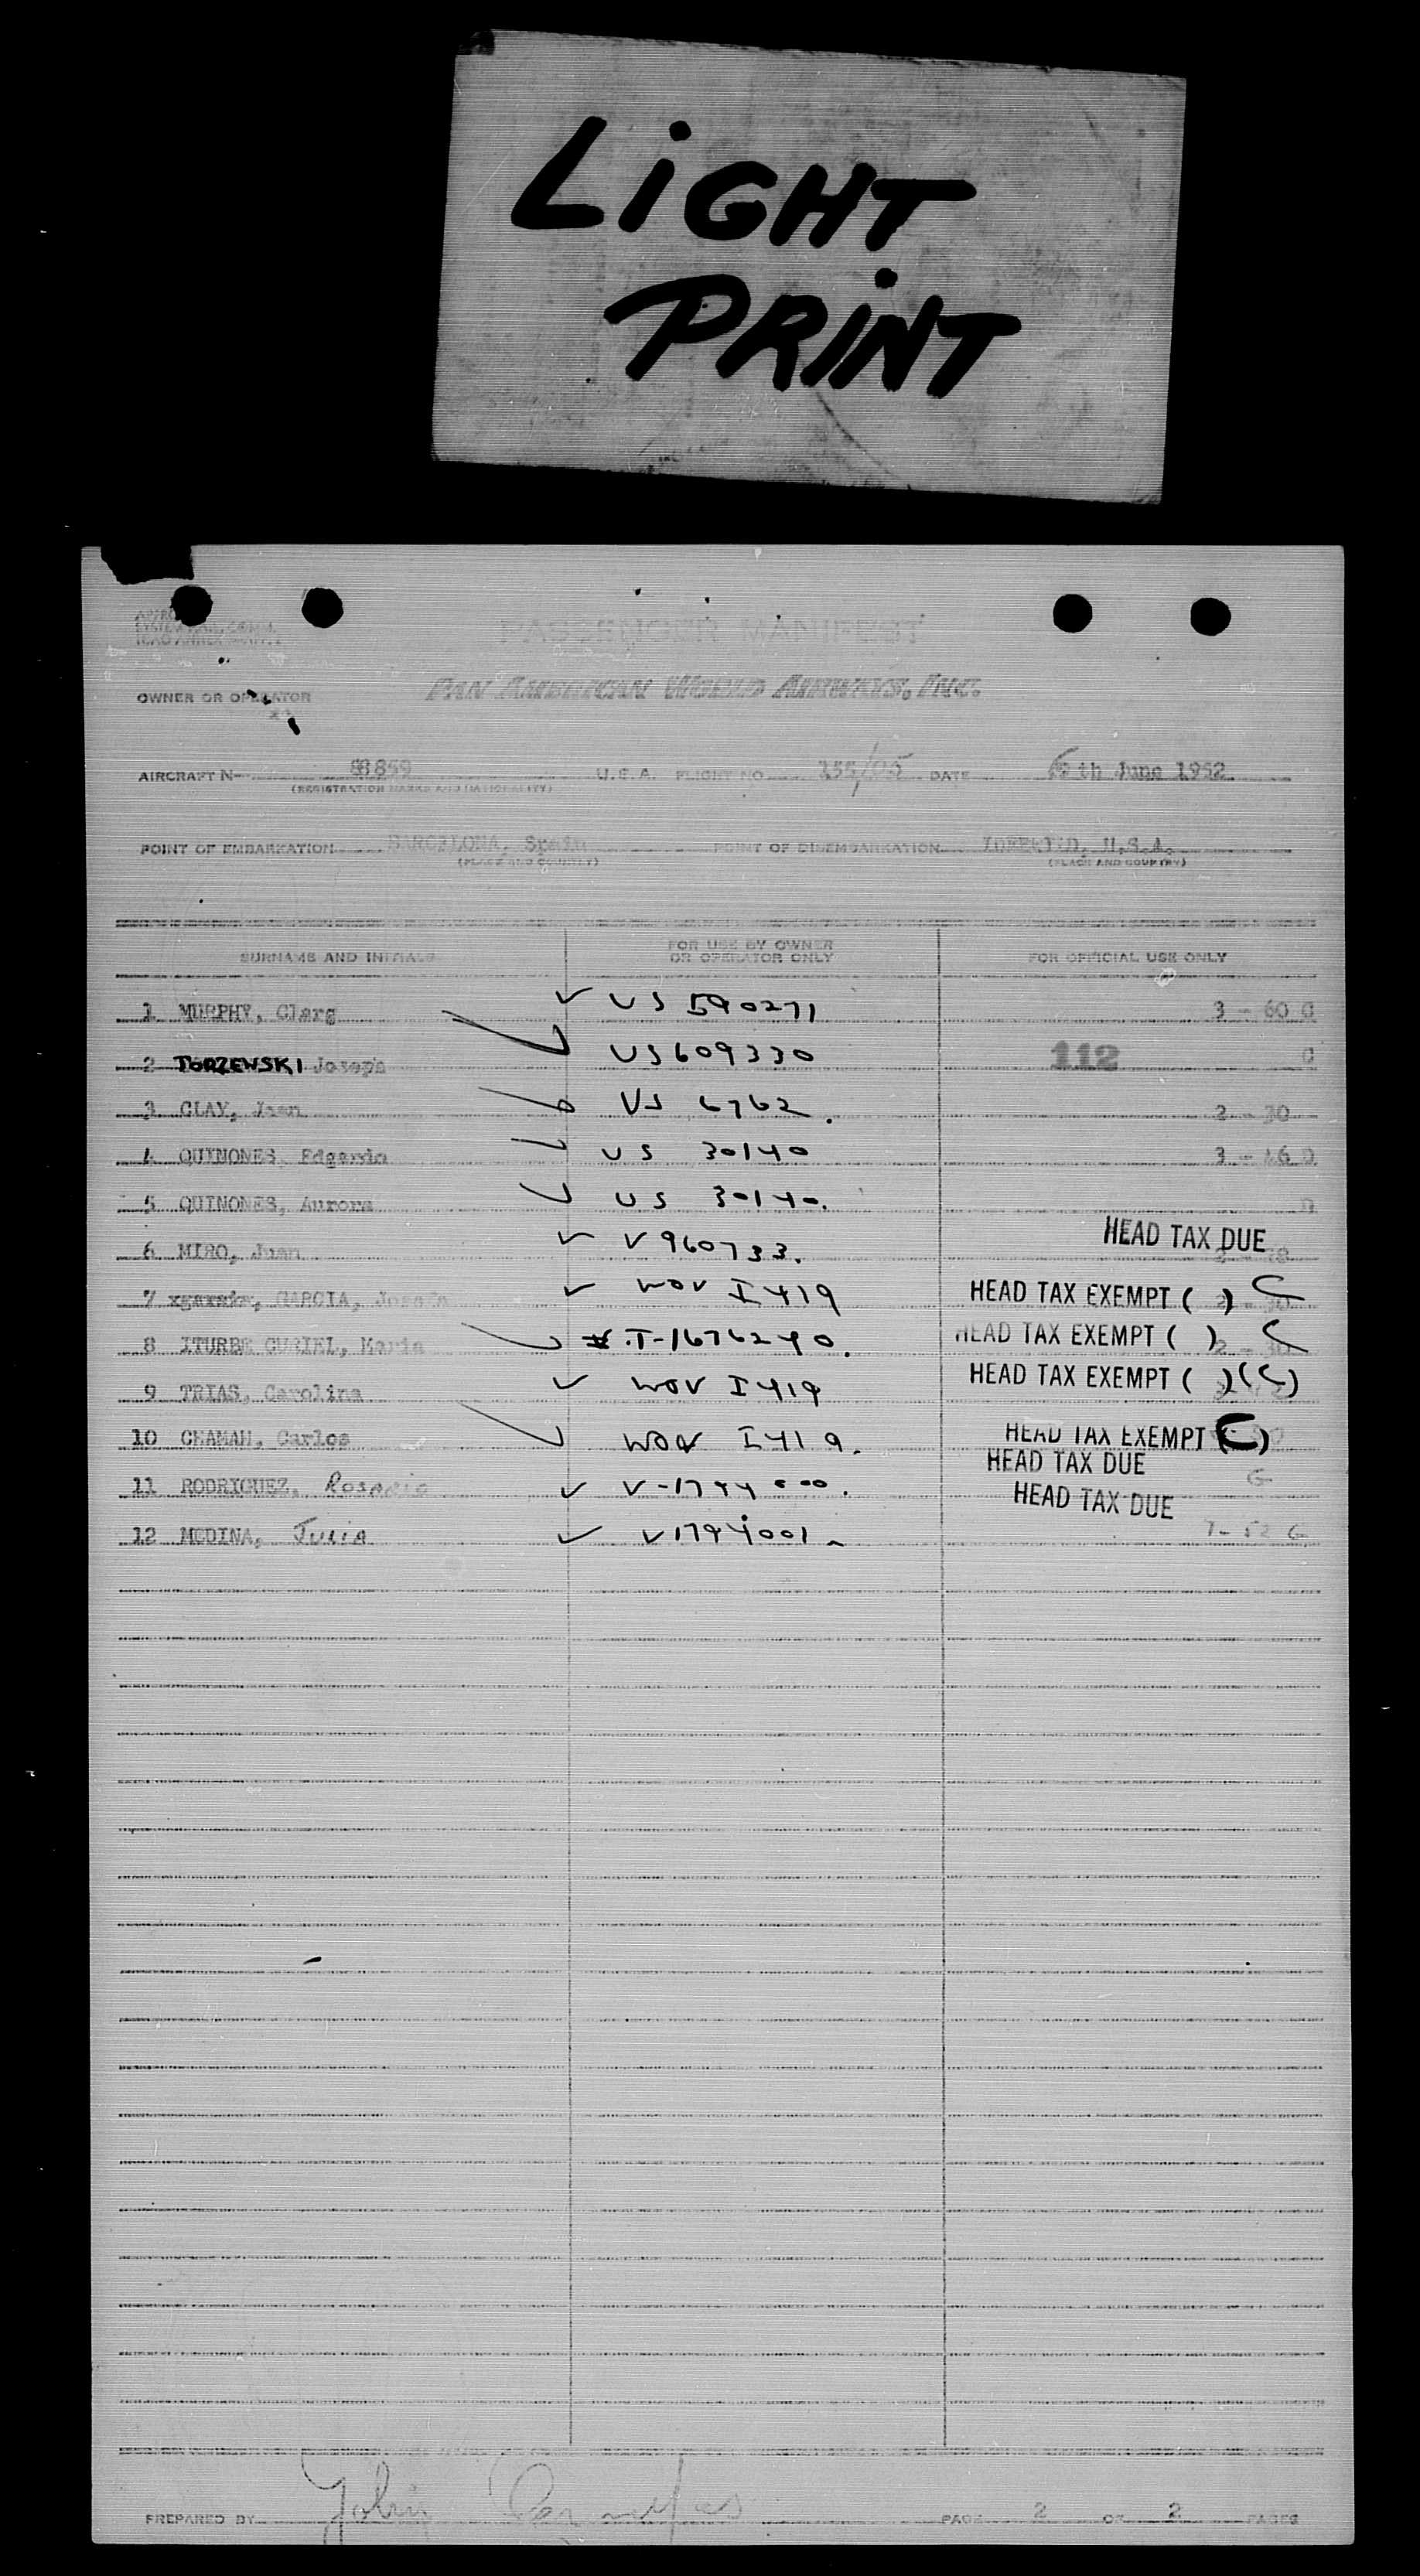 LiGHT
PRiNT
PASSENGER MANIFEST
OWNER OR OPERATOR PAN AMERICAN WORLD AIRWAYS, INC.
AIRCRAFT N- 88859 U.S.A. FLIGHT NO. 155/05 DATE 6 th June 1952
(REGISTRATION MARKS AND NATIONALITY)
POINT OF EMBARKATION BARCELONA, Spain POINT OF DISEMBARKATION U.S.A.
(PLACE AND COUNTRY) (PLACE AND COUNTRY)
SURNAME AND INITIALS FOR USE BY OWNER OR OPERATOR ONLY FOR OFFICIAL USE ONLY
1 MURPHY, Clarg ✓ US 590271 3 - 60 C
2 TORZEWSKI Joseph US 609330 112 C
3 CLAY, Jean US 6762. 2 - 30
4 QUINONES, Edgardo US 30140 3 - 46 D
5 QUINONES, Aurora US 30140.
6 MIRO, Juan ✓ V 960733. HEAD TAX DUE
7 GARCIA, Josefa ✓ WOV I 419 HEAD TAX EXEMPT ( ) C
8 ITURBE CURIEL, Maria T-1676240. HEAD TAX EXEMPT ( ) C
9 TRIAS, Carolina ✓ WOV I 419 HEAD TAX EXEMPT ( ) (C)
10 CHAMAH, Carlos WOV I 419. HEAD TAX EXEMPT (C)
11 RODRIGUEZ, Rosario ✓ V-1794000. HEAD TAX DUE G
12 MEDINA, Julia ✓ V1794001 HEAD TAX DUE 7-52 G
PREPARED BY John PAGE 2 OF 2 PAGES